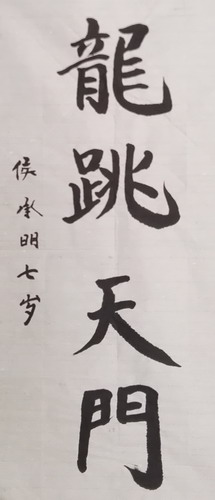 龍跳天門
侯承明七岁